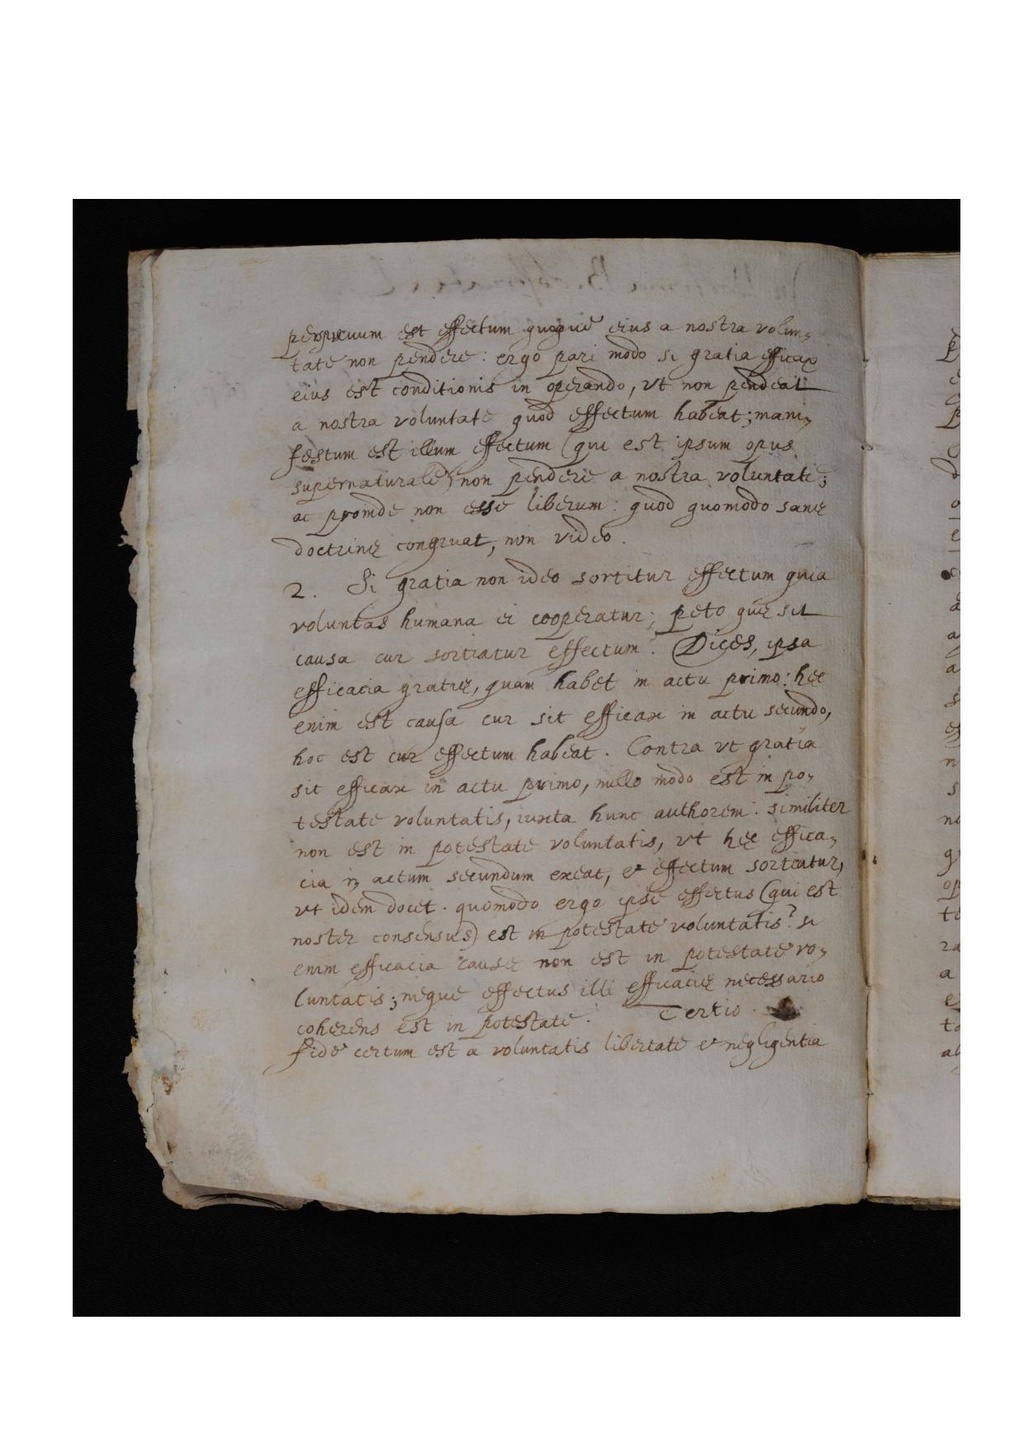 perspicuum est effectum quoque eius a nostra volun-
tate non pendere: ergo pari modo si gratia efficax
eius est conditionis in operando, vt non pendeat
a nostra voluntate quod effectum habeat; mani-
festum est illum effectum (qui est ipsum opus
supernaturale) non pendere a nostra voluntate;
ac proinde non esse liberum: quod quomodo sanę
doctrinę congruat, non video.
2. Si gratia non ideo sortitur effectum quia
voluntas humana ei cooperatur; peto quę sit
causa cur sortiatur effectum? Dices, ipsa
efficacia gratię, quam habet in actu primo: hęc
enim est causa cur sit efficax in actu secundo,
hoc est cur effectum habeat. Contra vt gratia
sit efficax in actu primo, nullo modo est in po-
testate voluntatis, iuxta hunc authorem: similiter
non est in potestate voluntatis, vt hęc effica-
cia in actum secundum exeat, et effectum sortiatur,
vt idem docet. quomodo ergo ipse effectus (qui est
noster consensus) est in potestate voluntatis? si
enim efficacia causę non est in potestate vo-
luntatis; neque effectus illi efficacię necessario
coherens est in potestate. Tertio.
fide certum est a voluntatis libertate et negligentia